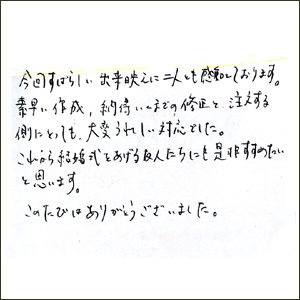 今回すばらしい出来映えに二人とも感動しております。
素早い作成，納得いくまでの修正と、注文する
側にとっても、大変うれしい対応でした。
これから結婚式をあげる友人たちにも是非すすめたい
と思います。
このたびはありがとうございました。